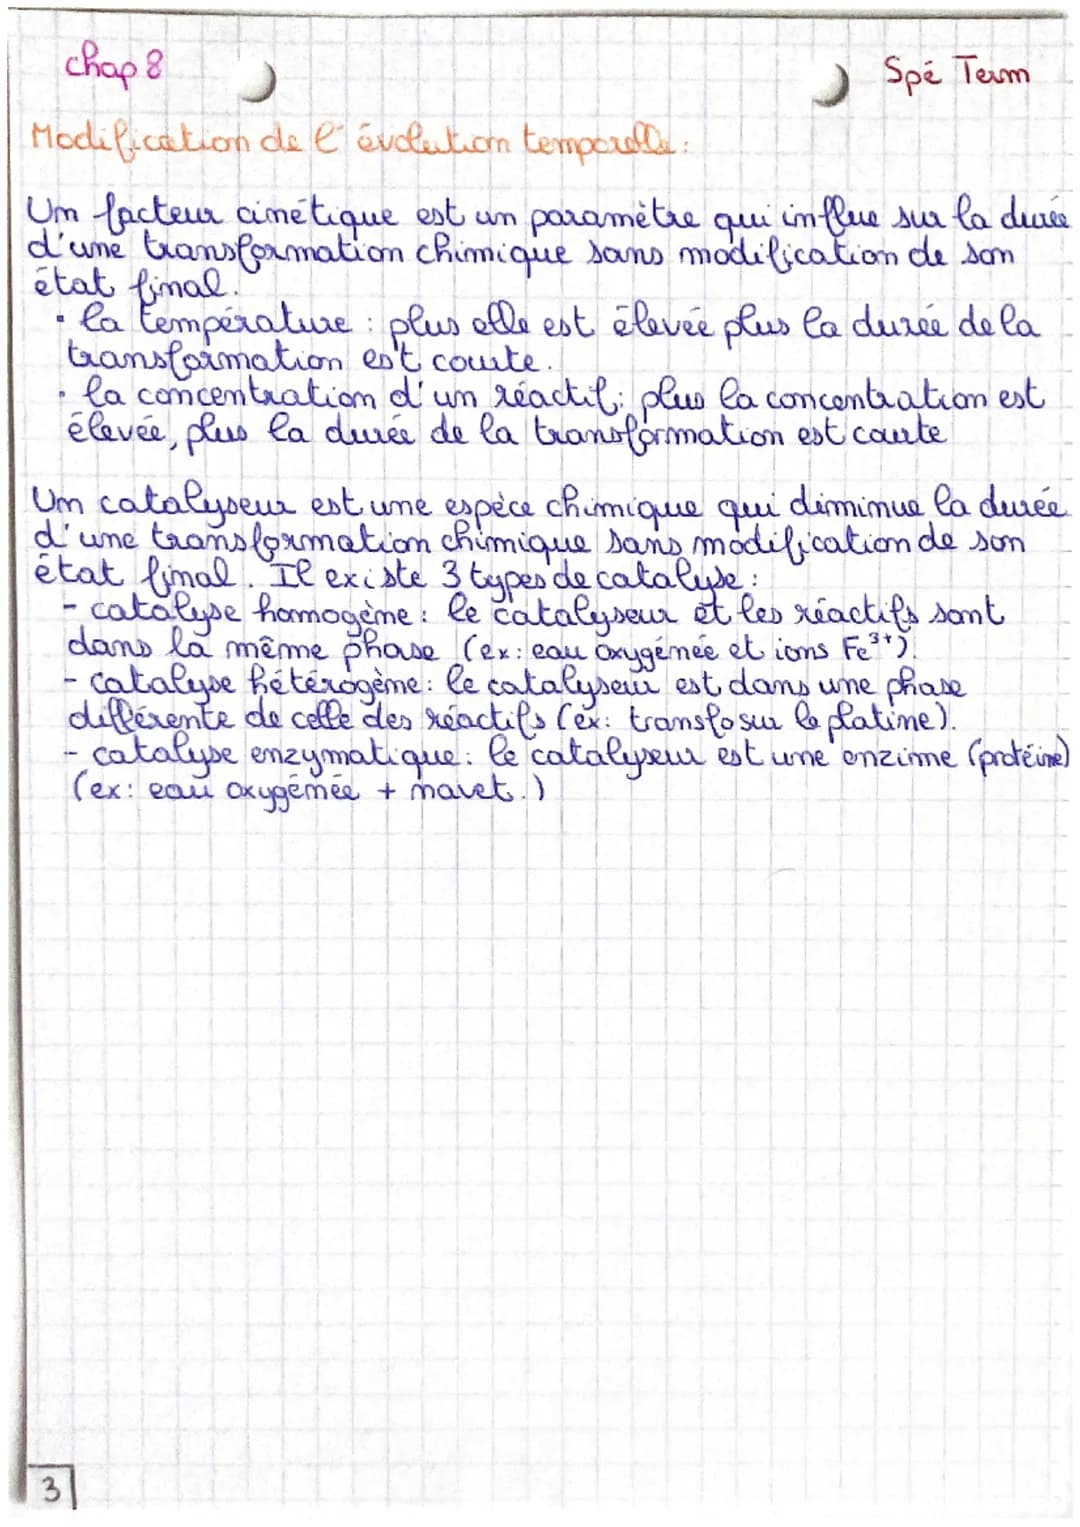 chap 8
Spé Term
Modification de l'évolution temporelle :
Un facteur cinétique est un paramètre qui influe sur la durée
d'une transformation chimique sans modification de son
état final.
• la température : plus elle est élevée plus la durée de la
transformation est courte.
• la concentration d'un réactif : plus la concentration est
élevée, plus la durée de la transformation est courte
Un catalyseur est une espèce chimique qui diminue la durée
d'une transformation chimique sans modification de son
état final. Il existe 3 types de catalyse :
- catalyse homogène : le catalyseur et les réactifs sont
dans la même phase (ex : eau oxygénée et ions Fe³⁺).
- catalyse hétérogène : le catalyseur est dans une phase
différente de celle des réactifs (ex : transfo sur le platine).
- catalyse enzymatique : le catalyseur est une enzime (protéine)
(ex : eau oxygénée + navet.)
3